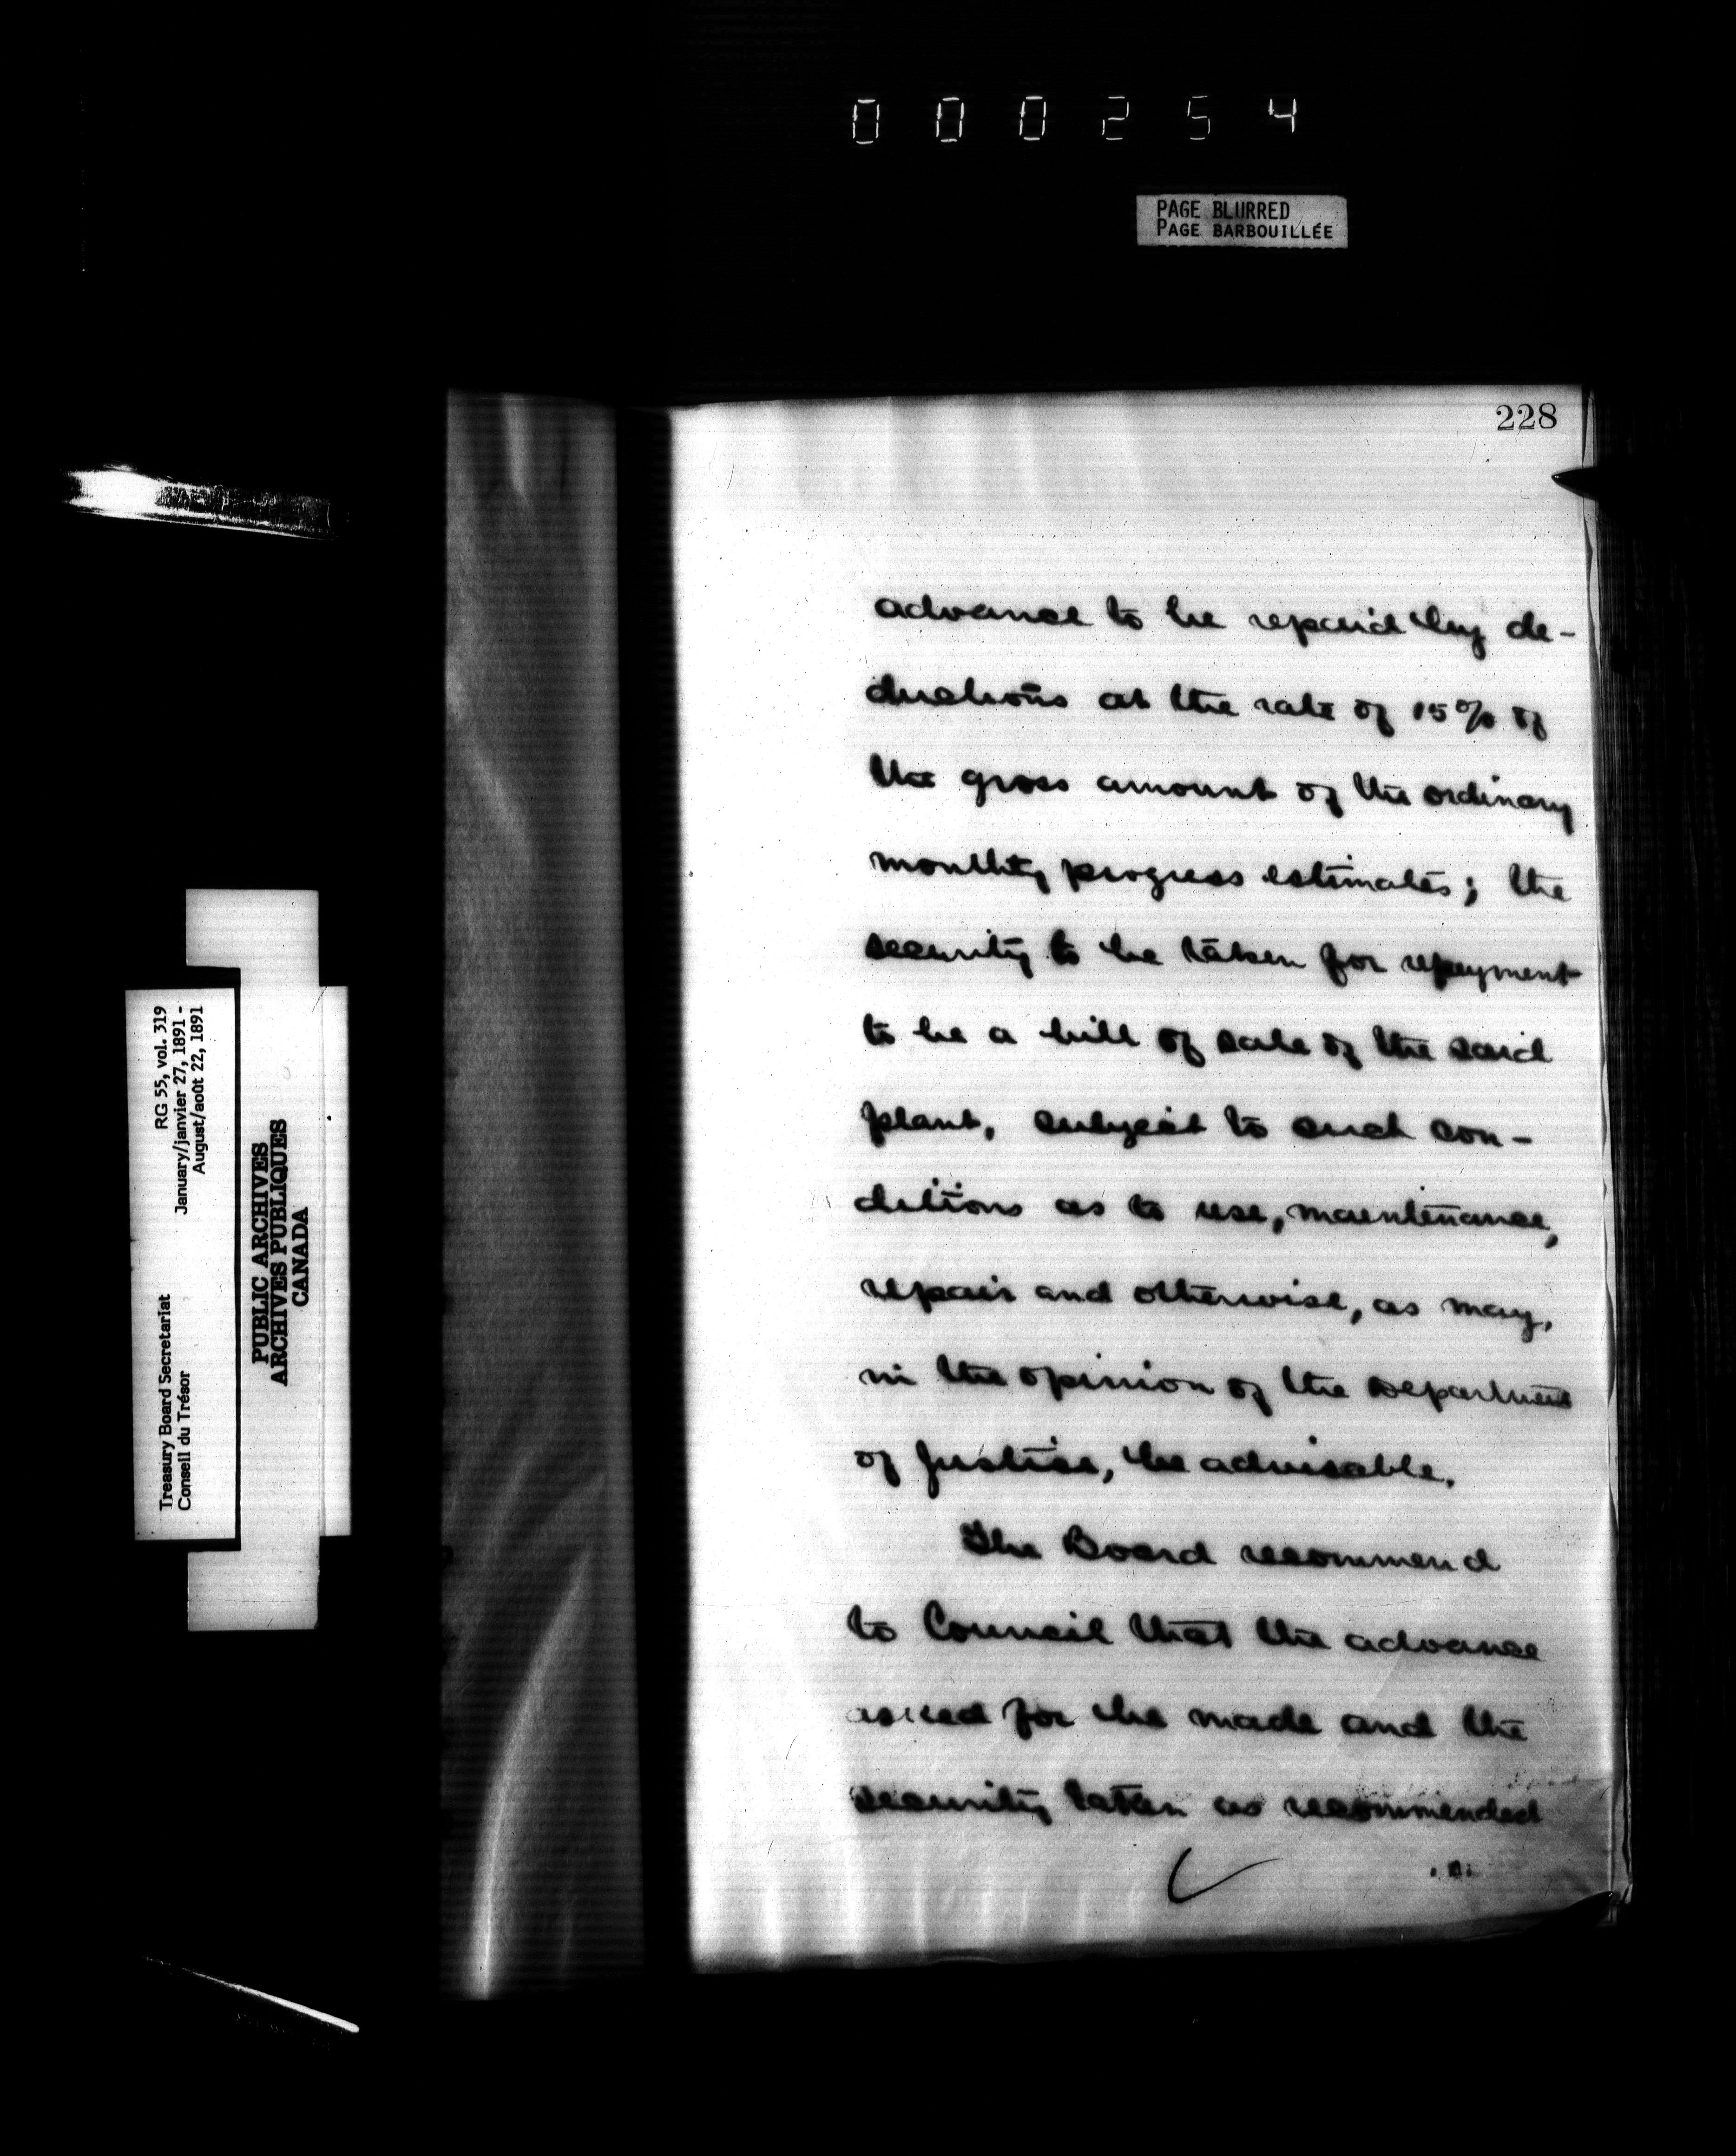 000254
PAGE BLURRED
PAGE BARBOUILLÉE
228
advance to be repaid by de-
ductions at the rate of 15% of
the gross amount of the ordinary
monthly progress estimates; the
security to be taken for repayment
to be a bill of sale of the said
plant, subject to such con-
ditions as to use, maintenance,
repair and otherwise, as may,
in the opinion of the Department
of Justice, be advisable.
The Board recommend
to Council that the advance
asked for be made and the
security taken as recommended
Treasury Board Secretariat RG 55, vol. 319
Conseil du Trésor January/janvier 27, 1891 -
August/août 22, 1891
PUBLIC ARCHIVES
ARCHIVES PUBLIQUES
CANADA